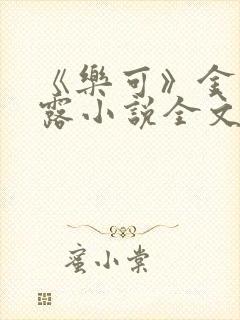 《樂可》金
露小說全文
蜜小棠